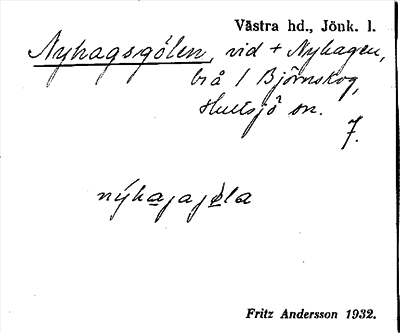 Västra hd., Jönk. l.
Nyhagsgölen, vid + Nyhagen,
Björnskog,
Hultsjö sn.
7.
nýhajajöla
Fritz Andersson 1932.